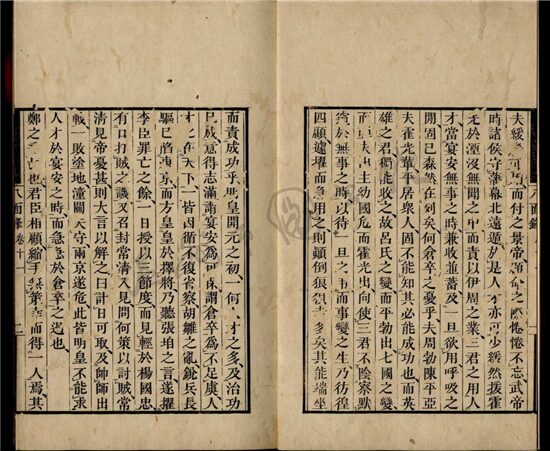 夫緩急可用而付之景帝顧命之際惓惓不忘武帝
時諸侯守準幕北遠遁於是人才亦可少緩然拔霍
光於湮沒無聞之中而責以伊周之業三君之用人
才當宴安無事之時兼收並蓄及一旦欲用呼吸之
間固已森然在列矣何倉卒之憂乎夫周勃陳平亞
夫霍光輩平居衆人固不能知其必能成功也而英
雄之君獨能收之故呂氏之變而平勃出七國之變
而亞夫出主幼國危而霍光出向使三君不陰察默
於無事之時以待一旦之用而事變之生乃彷徨
四顧遽擢而用之則顛倒狼狽多矣其能端坐
而責成功乎明皇開元之初一何人才之多及治功
已成意得志滿溺宴安自謂倉卒為不足虞人
才之在天下一皆因循不復省察胡雛之亂銳兵長
驅已陷東京而方皇皇於擇將乃聽張垍之言遂擢
李臣罪亡之餘一日授以三節度而見輕於楊國忠
有白打賊之譏又召封常清入見問何策以討賊常
清見帝憂甚則大言以解之曰計日可取及帥師出
戰一敗塗地潼關失守兩京遂危此皆明皇不能求
人才於宴安之時而急於倉卒之過也
鄭之也君臣相顧縮手無策而得一人焉其
八面鋒 卷十一
二